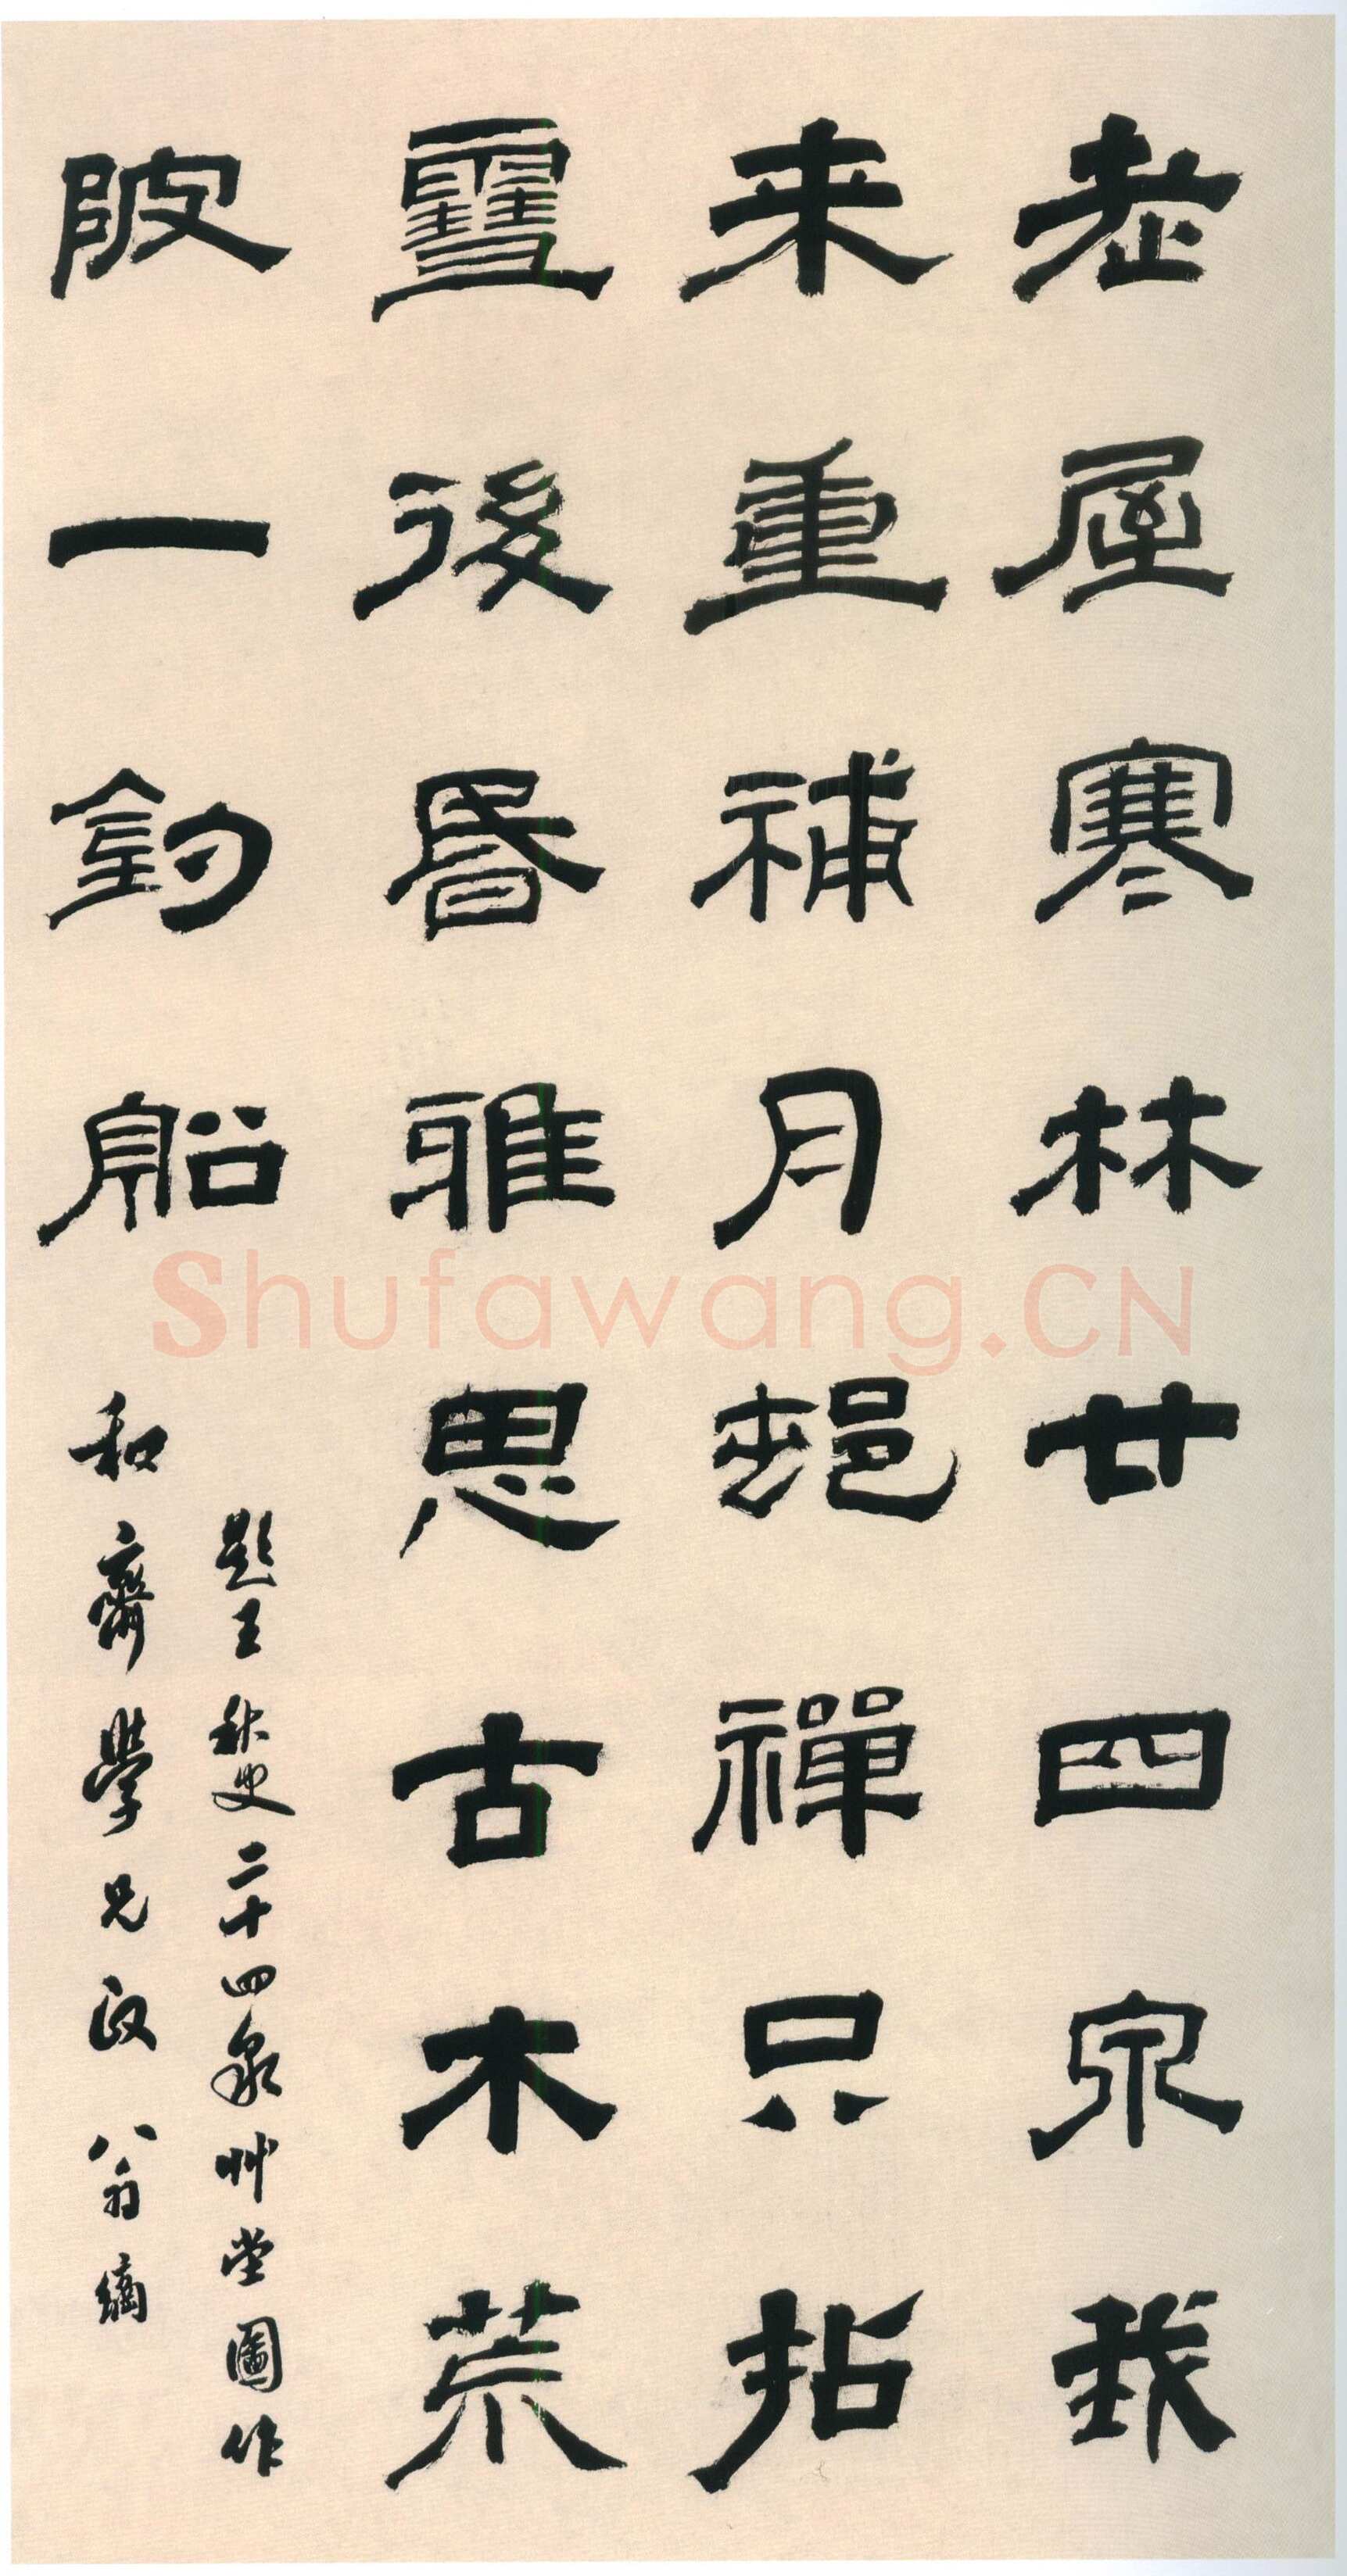 老屋寒林廿四泉我
来重補月邨禪只拈
雪後昬雅思古木荒
陂一釣船
題王秋史二十四泉艸堂圖作
和齋學兄政 翁方綱
Shufawang.CN